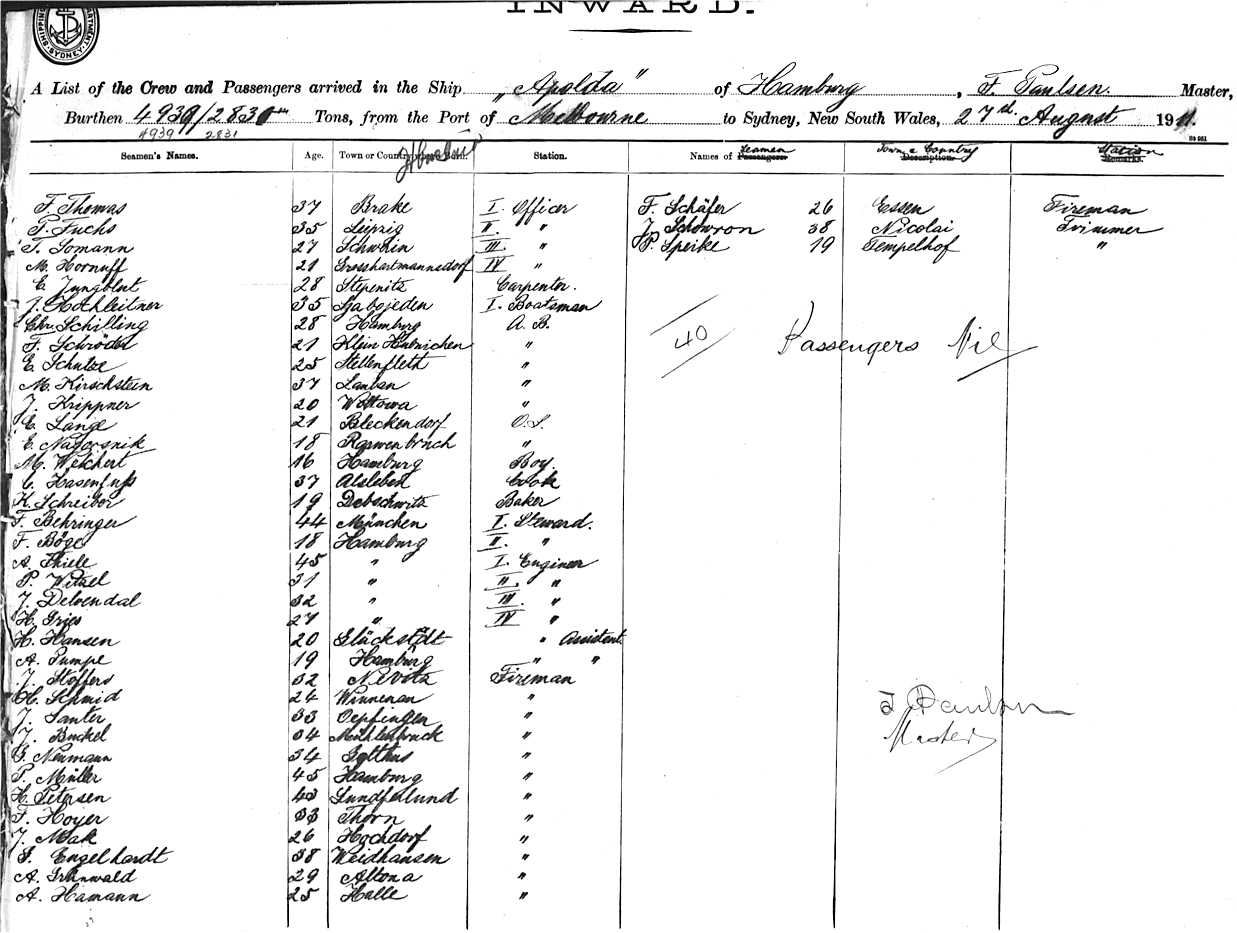 INWARD.
SHIPPING DEPARTMENT SYDNEY
A List of the Crew and Passengers arrived in the Ship „Apolda" of Hamburg, F. Paulsen. Master,
Burthen 4939/2830 Tons, from the Port of Melbourne to Sydney, New South Wales, 27th August 1911.
4939 2831
Seamen's Names. Age. Town or Country Station. Names of Passengers Seamen Description Town & Country Remarks. Station
F. Thomas 37 Brake I. Officer F. Schäfer 26 Essen Fireman
P. Fuchs 35 Leipzig II. " J. Schowron 38 Nicolai Trimmer
T. Lomann 27 Schwein III. " P. Speike 19 Tempelhof "
M. Hornuff 21 Grosshartmannsdorf IV "
E. Jungblut 28 Stepenitz Carpenter.
J. Hochleitner 35 I. Boatsman
Chr. Schilling 28 Hamburg A. B.
F. Schröder 21 Klein "
40 Passengers Nil
E. Schulze 25 Stellenfleth "
M. Kirschstein 37 Lauban "
J. Krippner 20 Wittowa "
E. Lange 21 Bleckendorf O.S.
E. Nadorsnik 18 "
M. Weichert 16 Hamburg Boy.
C. Hasenfuss 37 Alsleben Cook
K. Schreiber 19 Debschwitz Baker
F. Behringer 44 München I. Steward.
F. Böge 18 Hamburg II. "
A. Thiele 45 " I. Engineer
P. Witzel 31 " II. "
J. Delvendal 32 " III. "
H. Gries 27 " IV "
H. Hansen 20 Glückstadt " Assistent.
A. Pumpe 19 Hamburg " "
J. Stoffers 32 Fireman
H. Schmid 26 Winnenan "
J. Santer 33 Oepfingen " F Paulsen
J. Buckel 34 Mühlenbruck " Master
G. Neumann 34 "
P. Müller 45 Hamburg "
H. Petersen 43 "
F. Hoyer 33 Thorn "
J. Mak 26 Hochdorf "
F. Engelhardt 38 Weidhausen "
A. Grünwald 29 Altona "
A. Hamann 25 Halle "